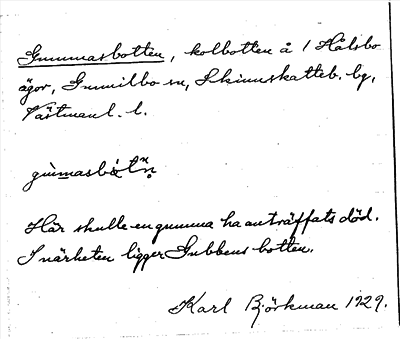 Gummasbotten, kolbotten å 1 Hålsbo
ägor, Gunnilbo sn, Skinnskatteb. bg,
Västmanl. l.
gùmasbót
Här skulle en gumma ha anträffats död.
I närheten ligger Gubbens botten.
Karl Björkman 1929.